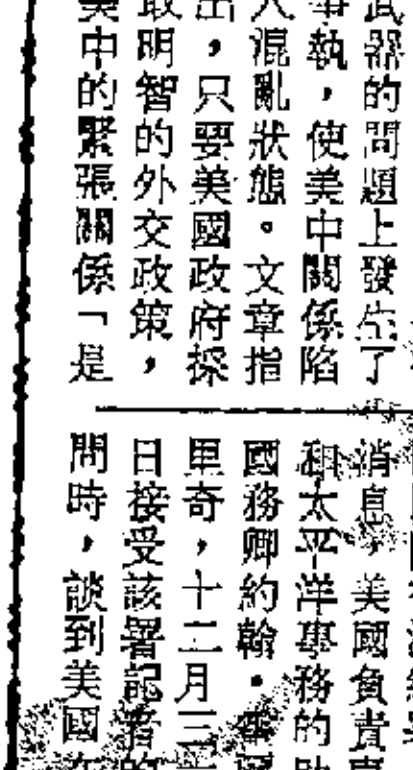 武器的問題上發生了
爭執，使美中關係陷
入混亂狀態。文章指
出，只要美國政府採
取明智的外交政策，
美中的緊張關係「是
消息，美國負責東
和太平洋事務的助
國務卿約翰・
里奇，十二月三
日接受該署記者的
問時，談到美國在